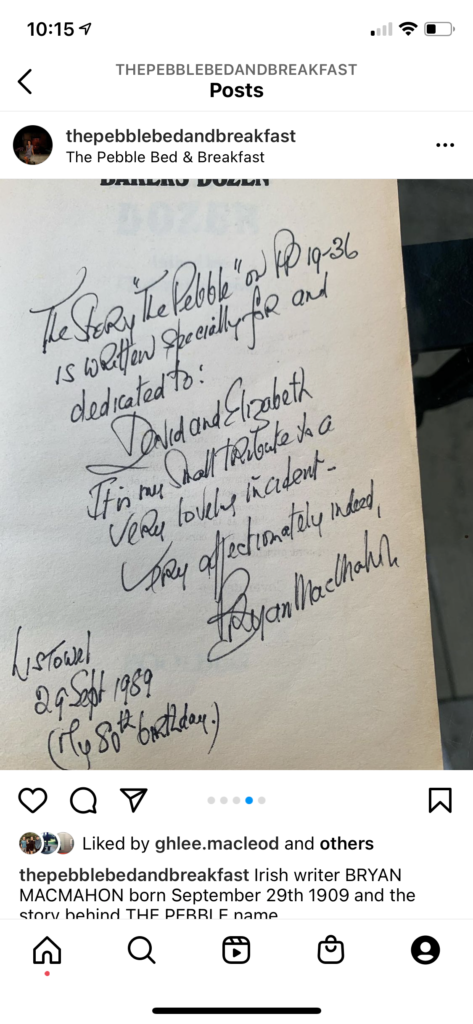 10:15
THEPEBBLEBEDANDBREAKFAST
Posts
thepebblebedandbreakfast
The Pebble Bed & Breakfast
BAKERS DOZEN
The Story "The Pebble" on PP 19-36
is written specially for and
dedicated to:
David and Elizabeth
It is my small tribute to a
very lovely incident -
Very affectionately indeed,
Bryan MacMahon
Listowel
29 Sept 1989
(My 80th birthday.)
Liked by ghlee.macleod and others
thepebblebedandbreakfast Irish writer BRYAN
MACMAHON born September 29th 1909 and the
story behind THE PEBBLE name